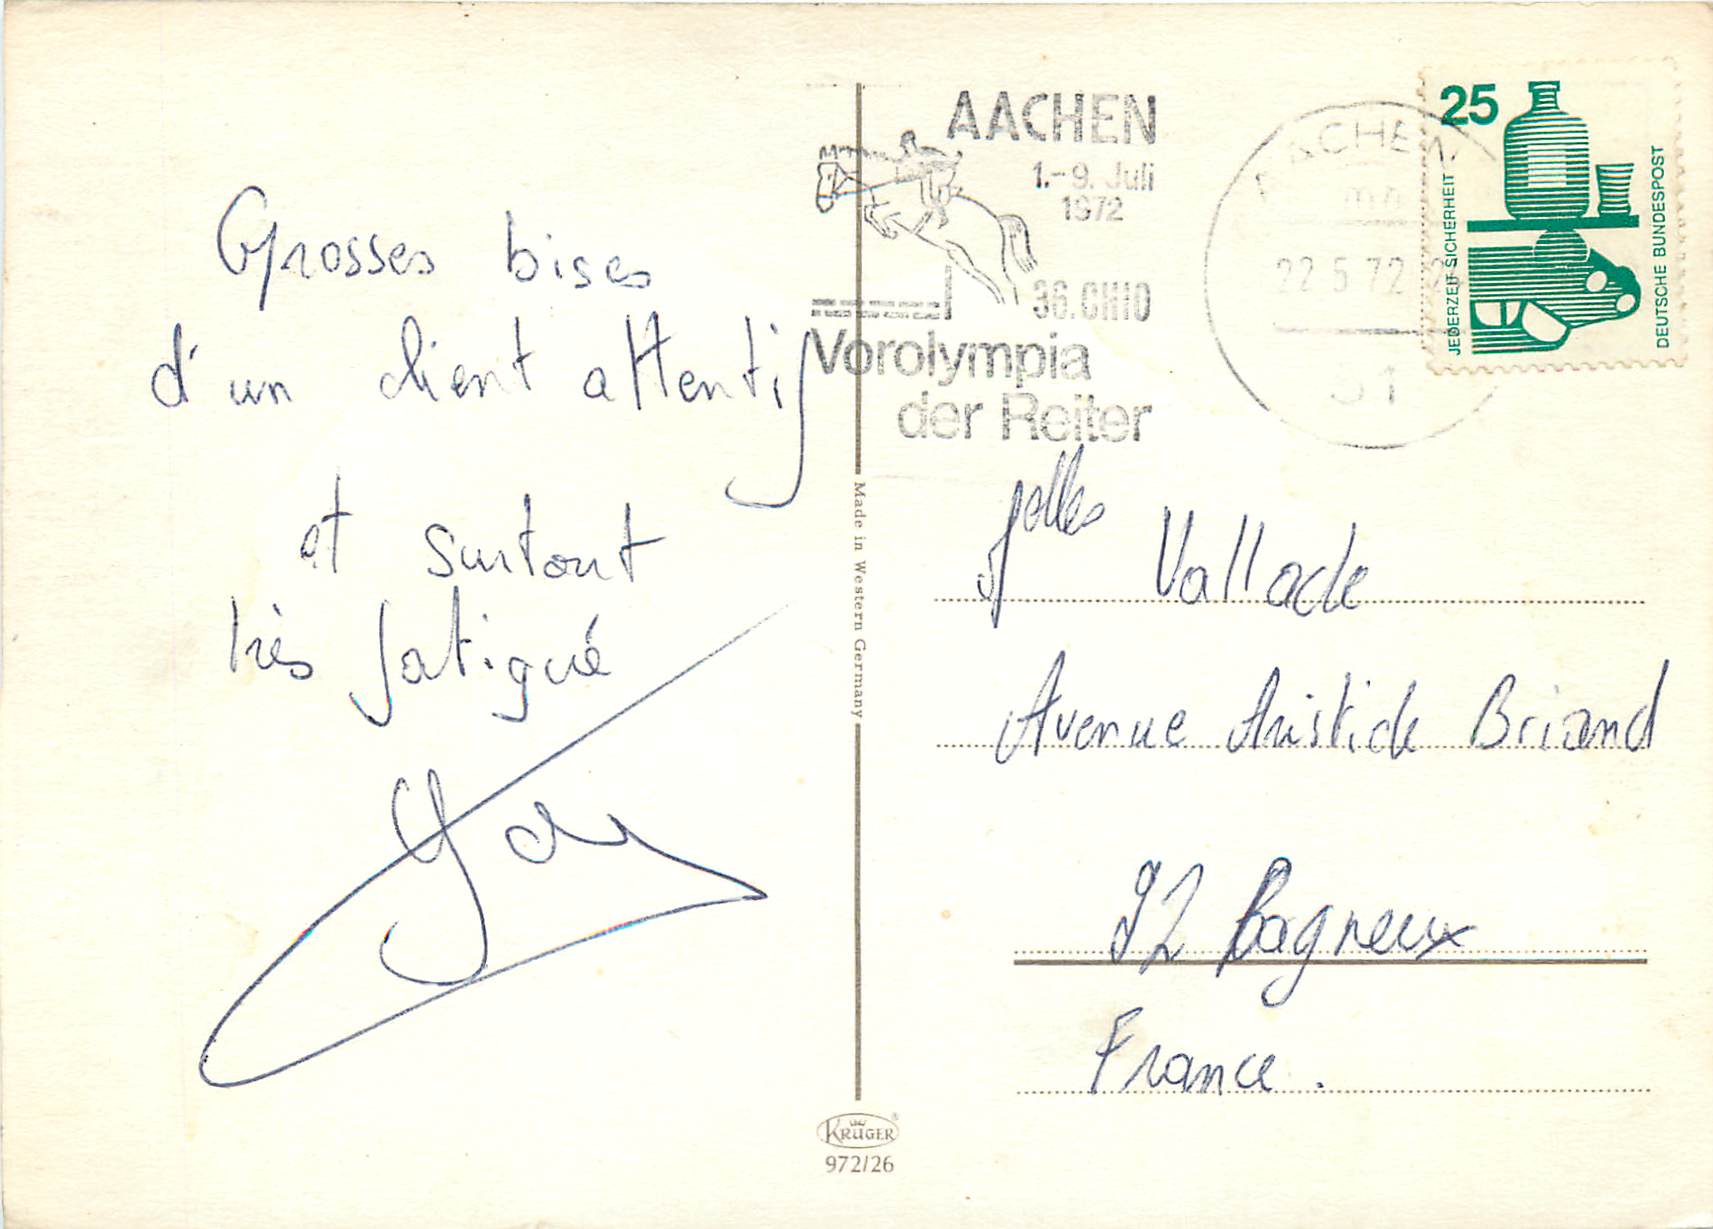 Grosses bises
d'un client attentif
et surtout
très fatigué
AACHEN
1.-9. Juli
1972
36. CHIO
Vorolympia
der Reiter
AACHEN
22.5.72
51
25
JEDERZEIT SICHERHEIT
DEUTSCHE BUNDESPOST
Made in Western Germany
Vallade
Avenue Aristide Briand
92 Bagneux
France.
KRÜGER
972/26